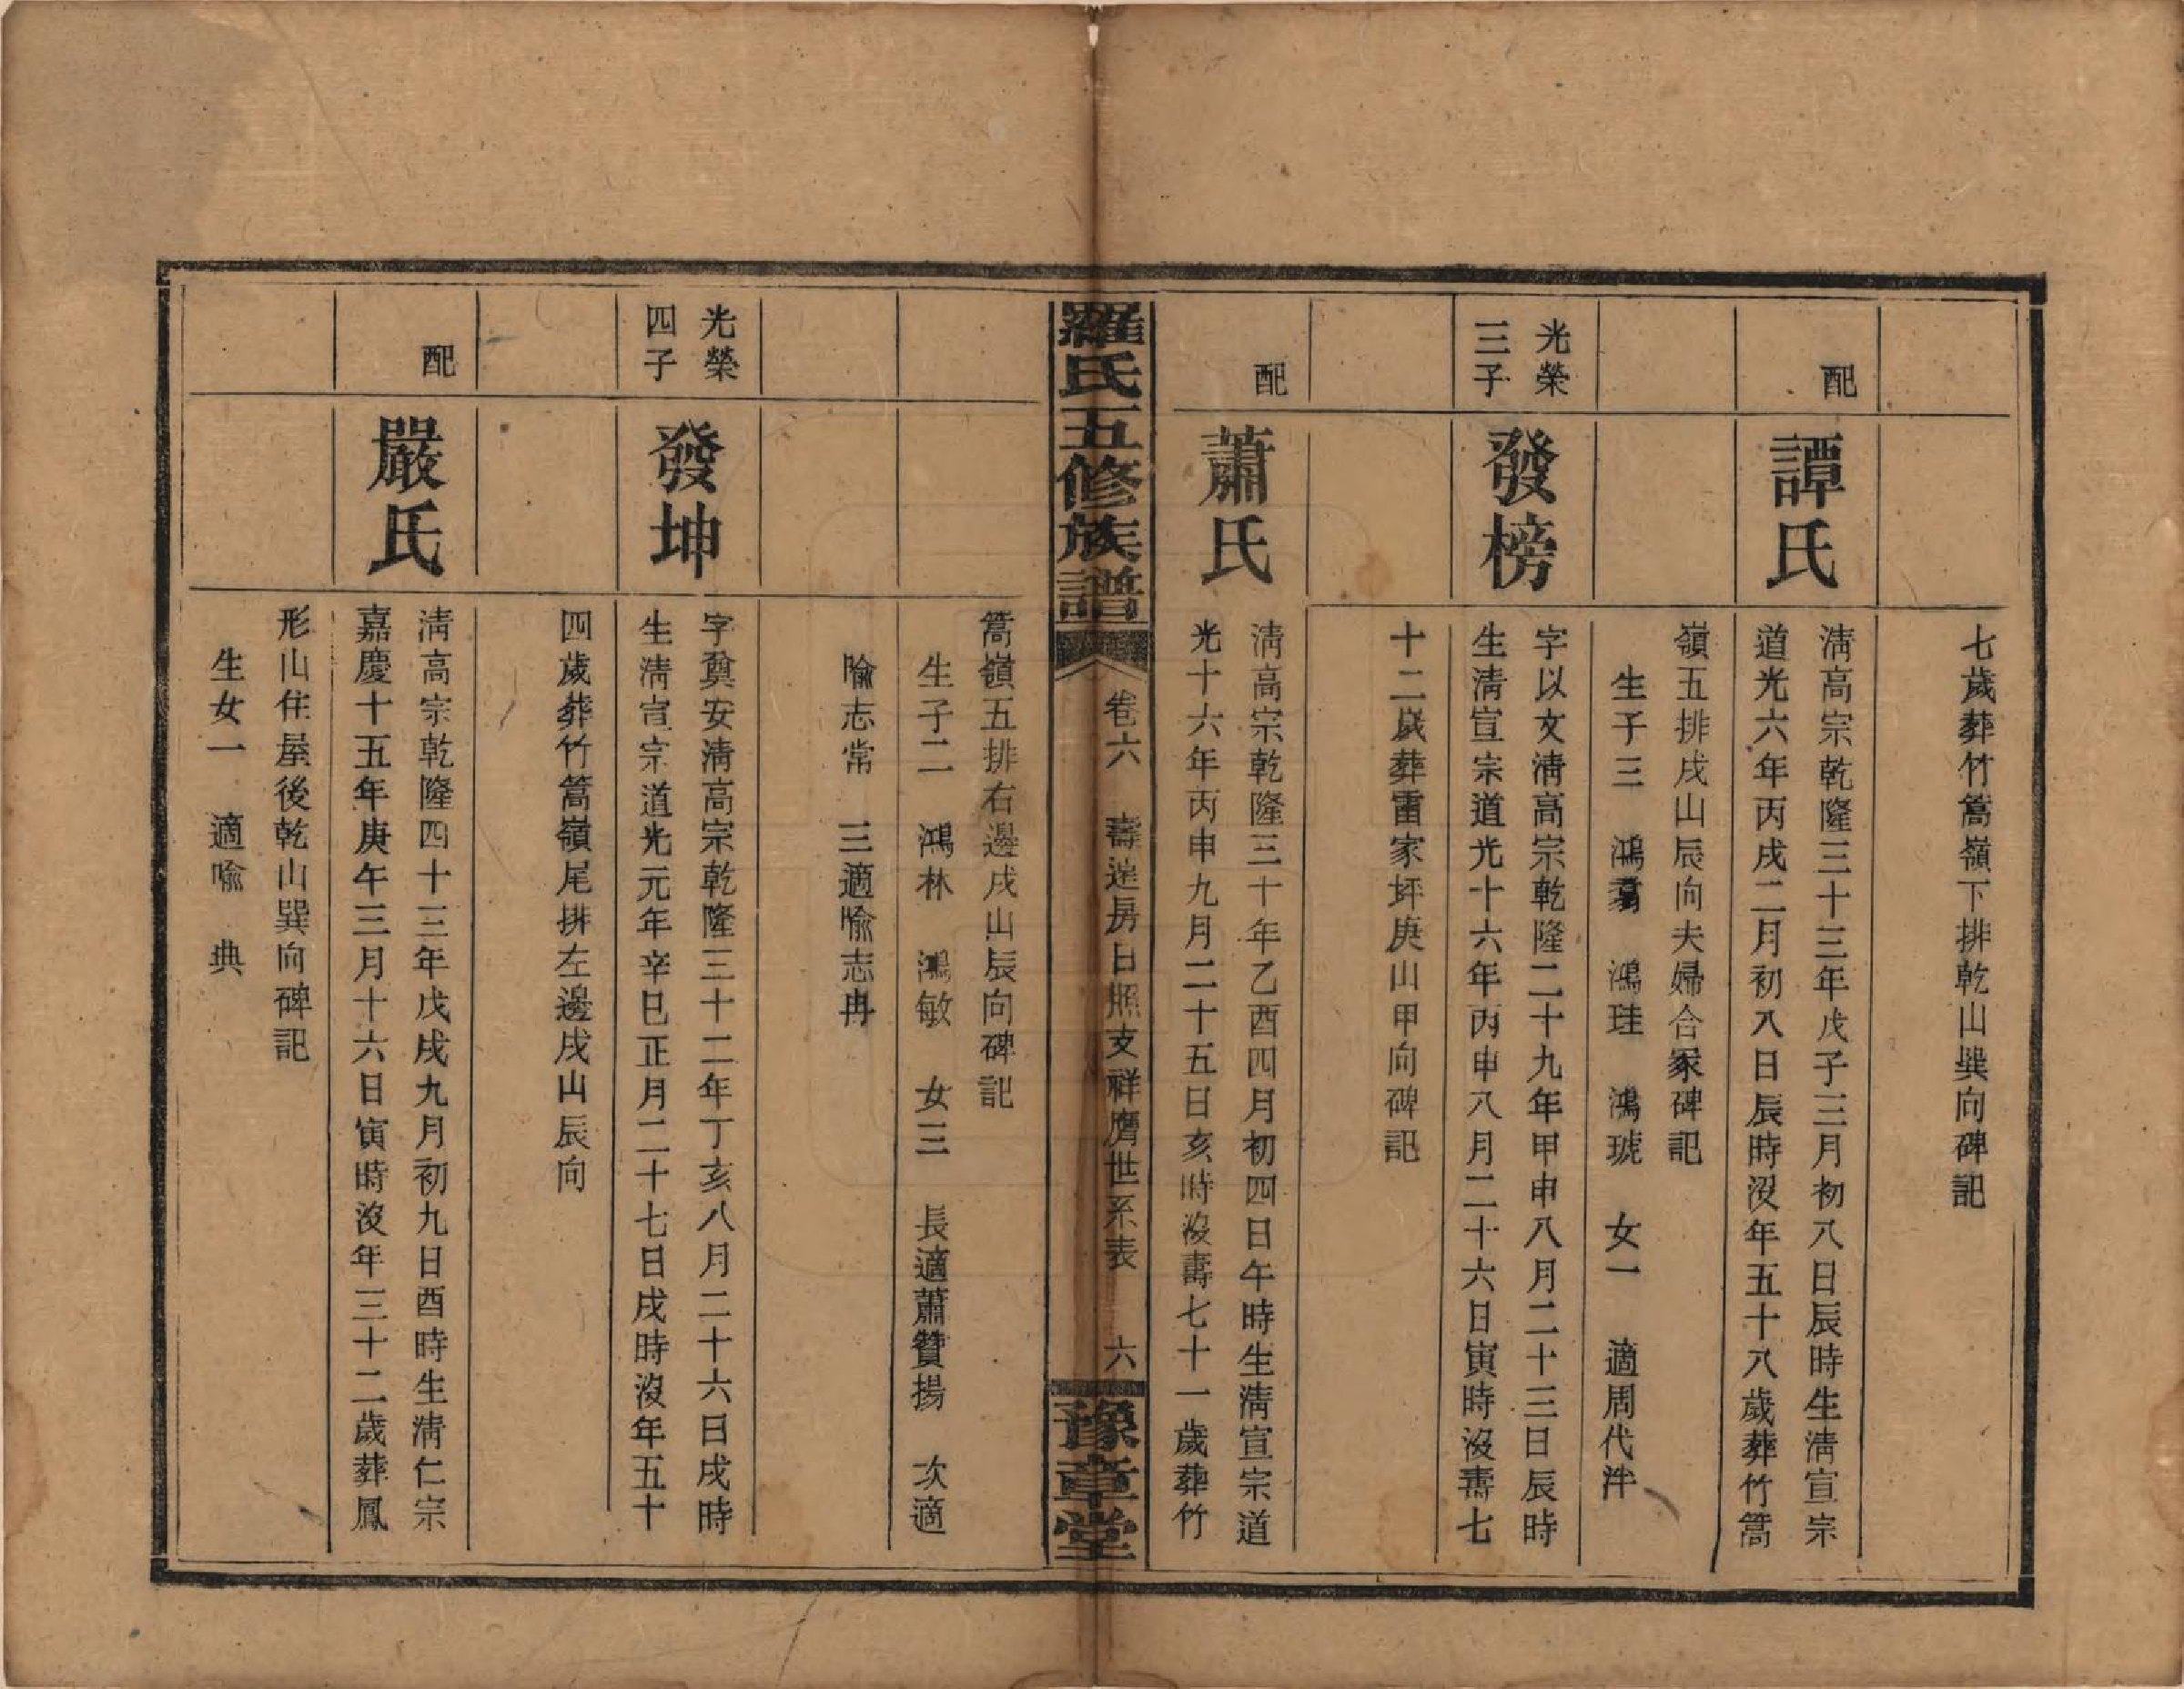 七歲葬竹篙嶺下排乾山巽向碑記
配
譚氏
淸高宗乾隆三十三年戊子三月初八日辰時生淸宣宗
道光六年丙戌二月初八日辰時沒年五十八歲葬竹篙
嶺五排戌山辰向夫婦合冢碑記
生子三 鴻翥 鴻珪 鴻琥 女一 適周代泮
光榮
三子
發榜
字以文淸高宗乾隆二十九年甲申八月二十三日辰時
生淸宣宗道光十六年丙申八月二十六日寅時沒壽七
十二歲葬雷家坪庚山甲向碑記
配
蕭氏
淸高宗乾隆三十年乙酉四月初四日午時生淸宣宗道
光十六年丙申九月二十五日亥時沒壽七十一歲葬竹
羅氏五修族譜
卷六 壽遠房日照支祥膺世系表 六
豫章堂
篙嶺五排右邊戌山辰向碑記
生子二 鴻林 鴻敏 女三 長適蕭贊揚 次適
喩志常 三適喩志冉
光榮
四子
發坤
字奠安淸高宗乾隆三十二年丁亥八月二十六日戌時
生淸宣宗道光元年辛巳正月二十七日戌時沒年五十
四歲葬竹篙嶺尾排左邊戌山辰向
配
嚴氏
淸高宗乾隆四十三年戊戌九月初九日酉時生淸仁宗
嘉慶十五年庚午三月十六日寅時沒年三十二歲葬鳳
形山住屋後乾山巽向碑記
生女一 適喩 典